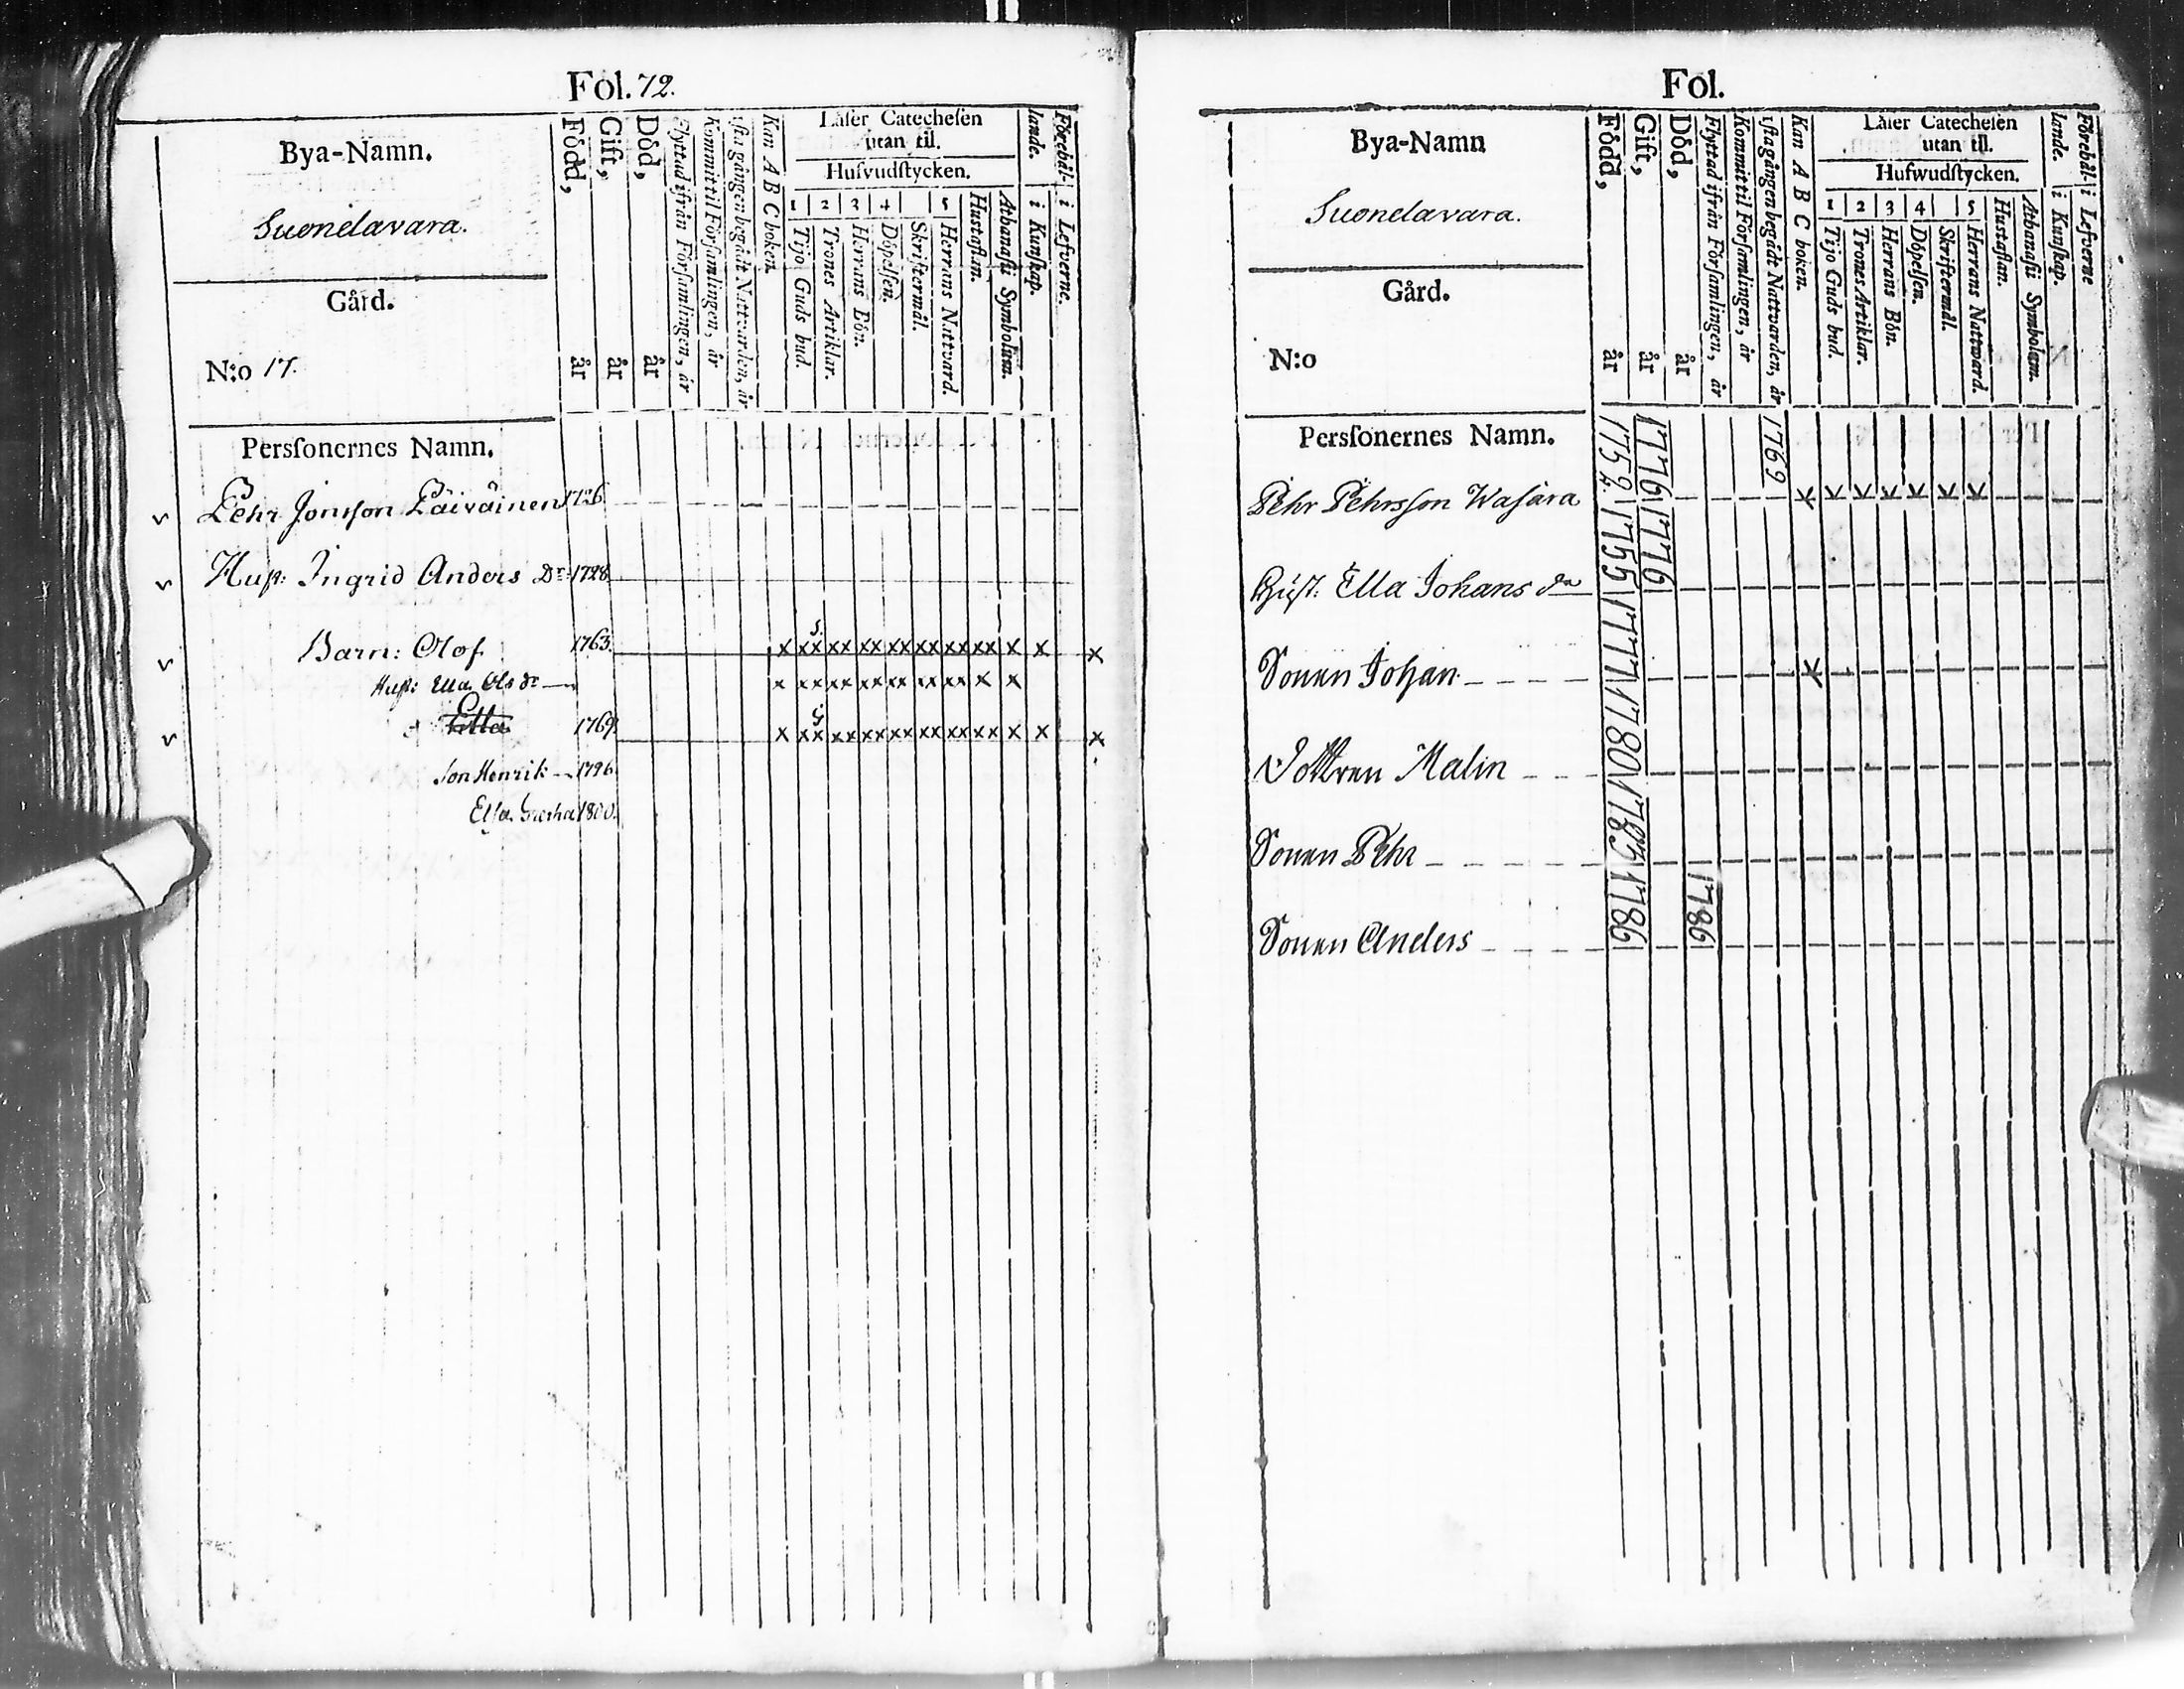 Fol. 72.
Bya-Namn.
Suonelavara.
Gård.
N:o 17.
Född, år
Gift, år
Död, år
Flyttad ifrån Församlingen, år
Kommit til Församlingen, år
första gången begådt Nattvarden, år
Kan A B C boken.
Läser Catechesen
utan til.
Hufvudstycken.
1 2 3 4 5
Tijo Guds bud.
Trones Artiklar.
Herrans Bön.
Döpelsen.
Skriftermål.
Herrans Nattvard.
Hustaflan.
Athanasii Symbolum.
Förehål-
lande.
i Kunskap.
i Lefverne.
Perssonernes Namn.
v Pehr Jonsson Päiväinen 1726
v Hust: Ingrid Anders Dr 1728
v Barn: Olof 1763 x xx xx xx xx xx xx x x x
Hust: Ella Ols dr x xx xx xx xx xx xx x x
v Ella 1769 x xx xx xx xx xx xx x x x
Son Henrik 1796
Elsa Gretha 1800.
Fol.
Bya-Namn
Suonelavara.
Gård.
N:o
Född, år
Gift, år
Död, år
Flyttad ifrån Församlingen, år
Kommit til Församlingen, år
första gången begådt Nattvarden, år
Kan A B C boken.
Läser Catechesen
utan til.
Hufwudstycken.
1 2 3 4 5
Tijo Guds bud.
Trones Artiklar.
Herrans Bön.
Döpelsen.
Skriftermål.
Herrans Nattward.
Hustaflan.
Athanasii Symbolum.
Förehål-
lande.
i Kunskap.
i Lefverne
Perssonernes Namn.
Pehr Pehrsson Wasara 1759 1776 1769
Hust: Ella Johans dr 1755 1776
Sonen Johan 1777
Dottren Malin 1780
Sonen Pehr 1783
Sonen Anders 1786 1786